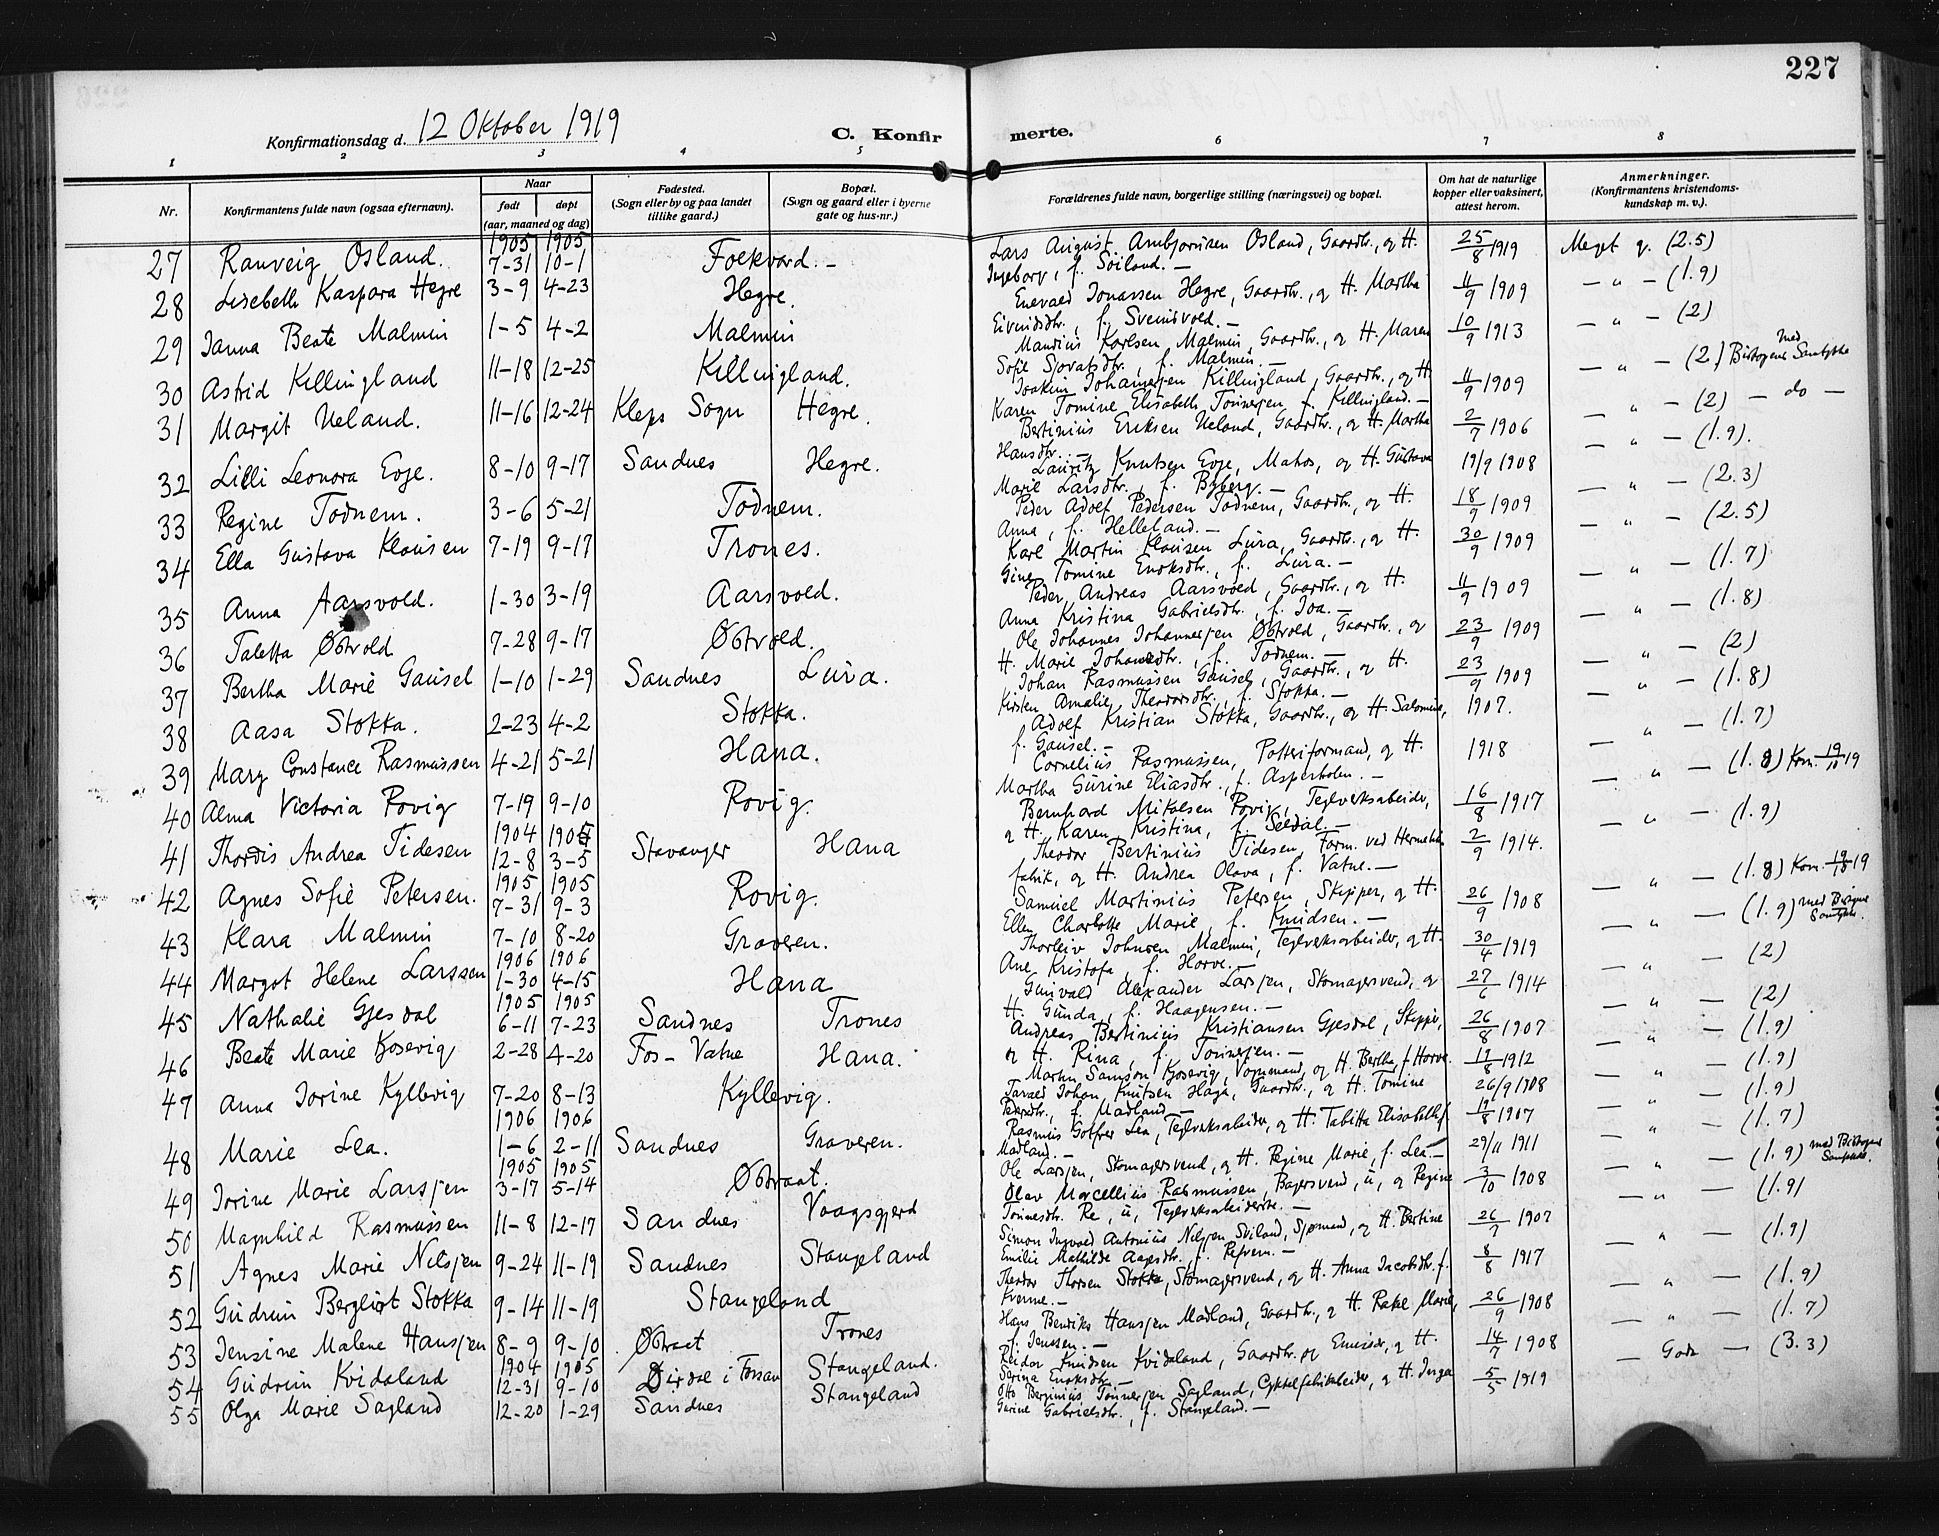 227
Konfirmationsdag d. 12 Oktober 1919
C. Konfirmerte.
1 2 3 4 5 6 7 8
Nr.
Konfirmantens fulde navn (ogsaa efternavn).
Naar
født døpt
(aar, maaned og dag)
Fødested.
(Sogn eller by og paa landet
tillike gaard.)
Bopæl.
(Sogn og gaard eller i byerne
gate og hus-nr.)
Forældrenes fulde navn, borgerlige stilling (næringsvei) og bopæl.
Om hat de naturlige
kopper eller vaksinert,
attest herom.
Anmerkninger.
(Konfirmantens kristendoms-
kundskap m. v.).
27 Ranveig Osland. 1905 7-31 1905 10-1 Folkvord. - Lars August Osland, Gaardbr., og H. Ingeborg, f. Soiland. - 25/8 1919 Meget g. (2.5)
28 Lisebeth Kaspara Hegre 3-9 4-23 Hegre. Enevald Jonassen Hegre, Gaardbr., og H. Martha Eivindsdtr., f. Svendsvold. - 11/9 1909 - " - (1.9)
29 Janna Beate Malmin 1-5 4-2 Malmin Mauritius Karlsen Malmin, Gaardbr., og H. Maren Sofie Sjovatsdtr., f. Malmin. - 10/9 1913 - " - (2)
30 Astrid Killingland 11-18 12-25 Killingland. Joakim Johannesjen Killingland, Gaardbr., og H. Karen Tomine Elisabeth Tønnesjen f. Killingland. - 11/9 1909 - " - (2) med Biskopens Samtykke
31 Margit Ueland. 11-16 12-24 Klepp Sogn Hegre. Bertinius Eriksen Ueland, Gaardbr., og H. Martha Hansdtr. - 2/7 1906 - " - (2) - do -
32 Lilli Leonora Eoje. 8-10 9-17 Sandnes Hegre. Lauritz Knutsen Eoje, Matros, og H. Gustava Marie Larsdtr., f. Byberg. - 19/9 1908 - " - (1.9).
33 Regine Todnem. 3-6 5-21 Todnem. Peder Adolf Pedersen Todnem, Gaardbr., og H. Anna, f. Helleland. - 18/9 1909 - " - (2.3)
34 Ella Gustava Klausen 7-19 9-17 Trones. Karl Martin Klausen Lura, Gaardbr., og H. Gine Tomine Enoksdtr., f. Lura. - 30/9 1909 - " - (2.5)
35 Anna Aarsvold. 1-30 3-19 Aarsvold. Peder Andreas Aarsvold, Gaardbr., og H. Anna Kristina Gabrielsdtr., f. Joa. - 11/9 1909 - " - (1.7)
36 Taletta Østvold 7-28 9-17 Østvold. Ole Johannes Johannesjen Østvold, Gaardbr., og H. Marie Johansdtr., f. Todnem. - 23/9 1909 - " - (1.8)
37 Bertha Marie Gausel 1-10 1-29 Sandnes Lura. Johan Rasmussen Gausel, Gaardbr., og H. Kirsten Amalie Theodorsdtr., f. Stokka. - 23/9 1909 - " - (2)
38 Aasa Stokka. 2-23 4-2 Stokka. Adolf Kristian Stokka, Gaardbr., og H. Salomine, f. Gausel. - 1907. - " - (1.8)
39 Mary Constance Rasmussen 4-21 5-21 Hana. Cornelius Rasmussen, Potteriformand, og H. Martha Gurine Eliasdtr., f. Aspesholen. - 1918 - " - (1.7)
40 Alma Victoria Rovig 7-19 9-10 Rovig. Bernhard Mikalsen Rovik, Teglverksarbeider, og H. Karen Kristina, f. Seldal. - 16/8 1917 - " - (1.8) Kom. 19/10 19
41 Thordis Andrea Tidesen 1904 12-8 1905 3-5 Stavanger Hana Theodor Bertinius Tidesen, Form. ved Hermetik fabrik, og H. Andrea Olava, f. Vatne. - 2/9 1914. - " - (1.9)
42 Agnes Sofie Petersen. 1905 7-31 1905 9-3 Rovig. Samuel Martinius Petersen, Skipper, og H. Ellen Charlotte Marie, f. Knudsen. - 26/9 1908 - " - (1.8) Kom. 19/10 19
43 Klara Malmin 7-10 8-20 Graveren. Thorleiv Johnsen Malmin, Teglverksarbeider, og H. Ane Kristofa, f. Horve. - 30/4 1919 - " - (1.9) med Bispens Samtykke.
44 Margot Helene Larssen 1906 1-30 1906 4-15 Hana Gunvald Alexander Larsjen, Skomagersvend, og H. Gunda, f. Haagensen. - 27/6 1914 - " - (2)
45 Nathalie Gjesdal 1905 6-11 1905 7-23 Sandnes Trones Andreas Bertinius Kristiansen Gjesdal, Skipper, og H. Rina, f. Tønnesjen. - 26/8 1907 - " - (2)
46 Beate Marie Kjosevig 2-28 4-20 Fos-Vatne Hana. Martin Samson Kjosevig, Vognmand, og H. Bertha, f. Horve. 19/8 1912 - " - (1.9)
47 Anna Jorine Kyllevig 7-20 8-13 Kyllevig. Tarald Johan Knutsen Haga, Gaardbr., og H. Tomine Pedersdtr., f. Madland. - 26/9 1908 - " - (1.9)
48 Marie Lea. 1906 1-6 1906 2-11 Sandnes Graveren. Rasmus Gotfred Lea, Teglverksarbeider, og H. Tabitta Elisabeth f. Madland. - 19/8 1907 - " - (1.9)
49 Jorine Marie Larsjen 1905 3-17 1905 5-14 Østraat. Ole Larsjen, Skomagersvend, og H. Regine Marie, f. Lea. - 29/11 1911 - " - (1.7)
50 Magnhild Rasmussen 11-8 12-17 Sandnes Vaagsgjerd Olav Marcellius Rasmussen, Bagersvend, u, og Regine Tønnesdtr. Re, u, Teglverksarbeiderske. - 3/10 1908 - " - (1.9) med Biskopens Samtykke.
51 Agnes Marie Nilsjen 9-24 11-19 Sandnes Stangeland Simon Ingvald Antonius Nilsjen Sviland, Sjømand, og H. Bertine Emilie Mathilde Aagsdtr., f. Refvem. - 26/7 1907 - " - (1.9)
52 Gudrun Bergliot Stokka 9-14 11-19 Stangeland Theodor Thorsen Stokka, Skomagersvend, og H. Anna Jacobsdtr. f. Kverme. - 8/8 1917 - " - (1.9)
53 Jensine Malene Hansjen 8-9 9-10 Østraat Trones Hans Bendiks Hansjen Madland, Gaardbr., og H. Rakel Marie, f. Jenssen. - 26/9 1908 - " - (1.9)
54 Gudrun Kvidaland 1904 12-31 1905 9-10 Dirdal i Forsan Stangeland. Reidar Knudsen Kvidaland, Gaardbr. og Emissær, og H. Serina Enoksdtr. - 14/7 1908 - " - (1.7)
55 Olga Marie Sagland 12-20 1-29 Sandnes Stangeland Otto Berginius Tønnesjen Sagland, Cykkelfabrikarbeider, og H. Inga Gurine Gabrielsdtr., f. Stangeland. - 5/5 1919 - Godt - (3.3)